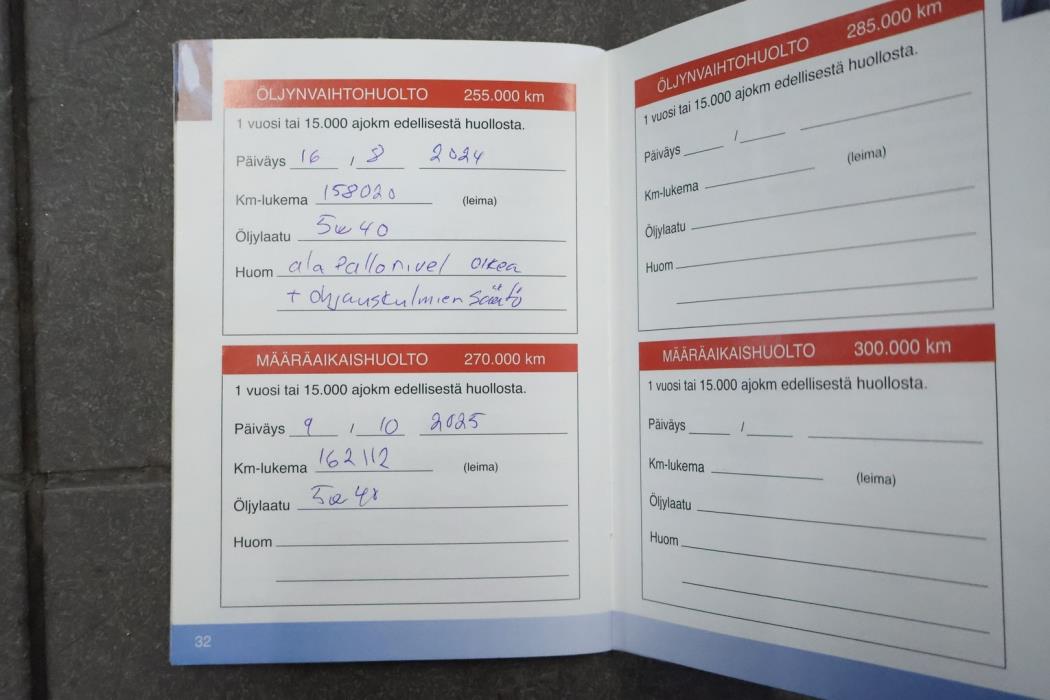 ÖLJYNVAIHTOHUOLTO 255.000 km
1 vuosi tai 15.000 ajokm edellisestä huollosta.
Päiväys 16 / 8 2024
Km-lukema 158020 (leima)
Öljylaatu 5w40
Huom ala Pallonivel oikea
+ ohjauskulmien säätö
MÄÄRÄAIKAISHUOLTO 270.000 km
1 vuosi tai 15.000 ajokm edellisestä huollosta.
Päiväys 9 / 10 2025
Km-lukema 162112 (leima)
Öljylaatu 5w40
Huom
32
ÖLJYNVAIHTOHUOLTO 285.000 km
1 vuosi tai 15.000 ajokm edellisestä huollosta.
Päiväys /
Km-lukema (leima)
Öljylaatu
Huom
MÄÄRÄAIKAISHUOLTO 300.000 km
1 vuosi tai 15.000 ajokm edellisestä huollosta.
Päiväys /
Km-lukema (leima)
Öljylaatu
Huom